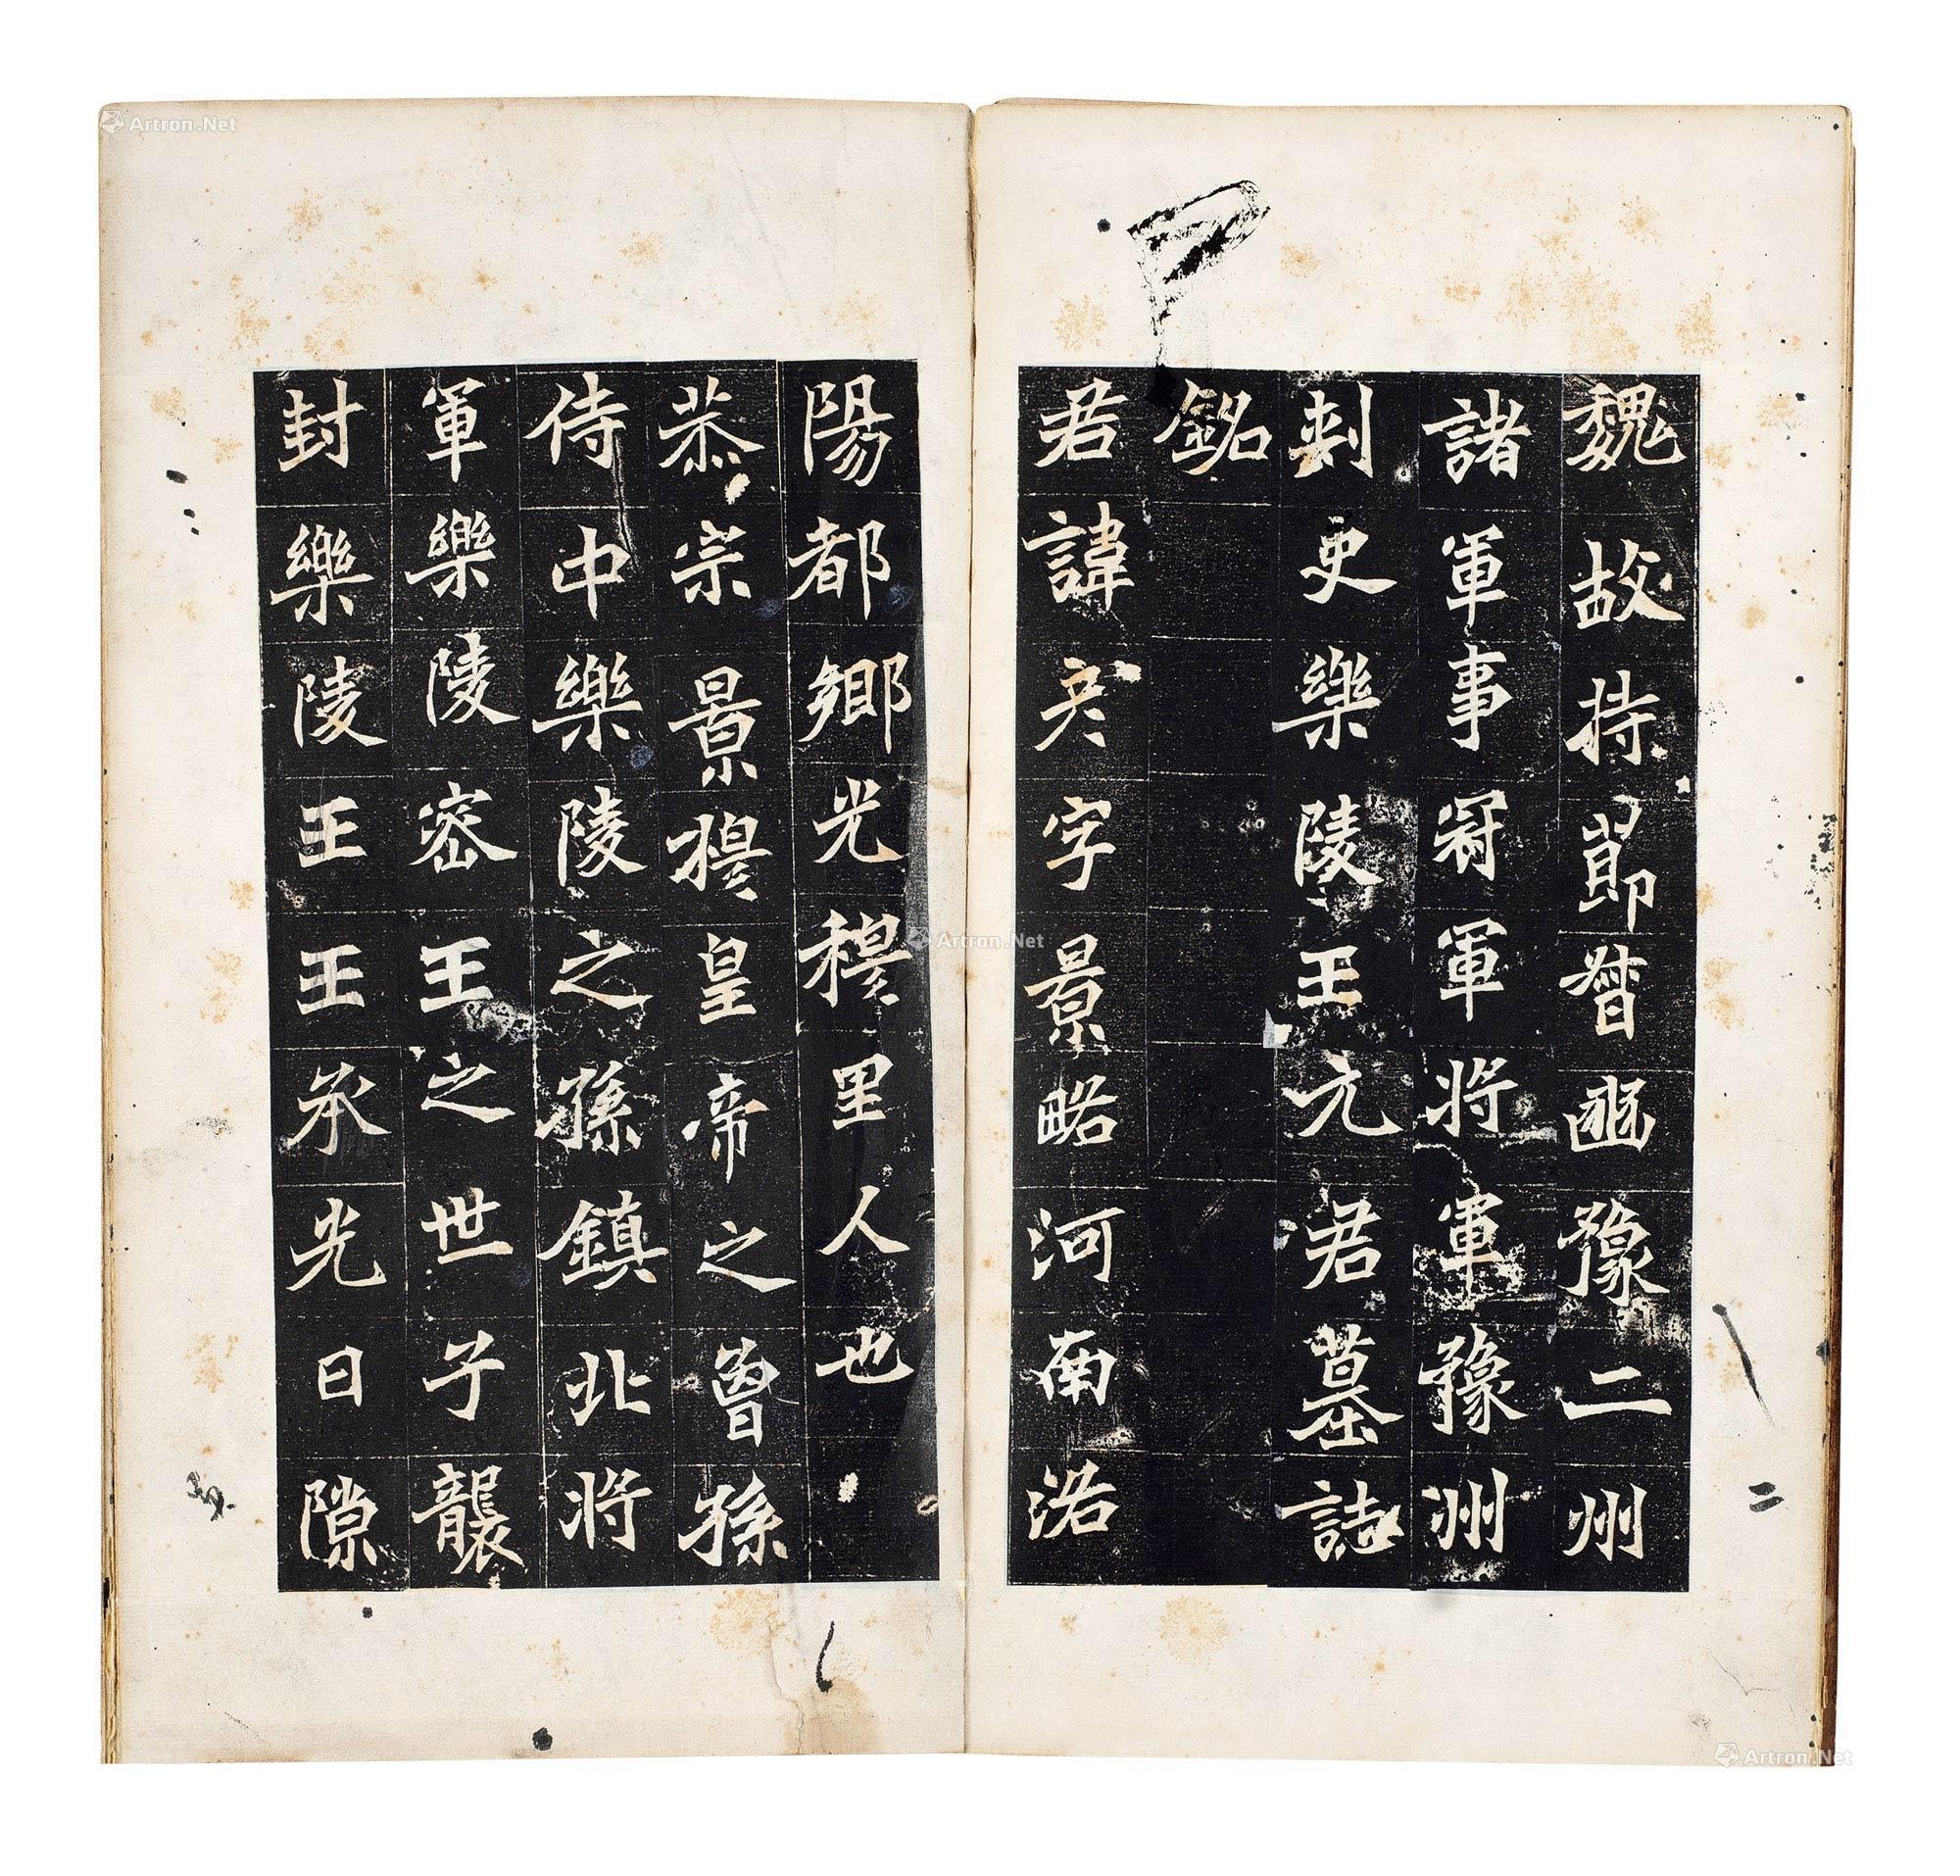 魏故持節督豳豫二州
諸軍事冠軍將軍豫州
刺史樂陵王元君墓誌
銘
君諱彥字景略河南洛
陽都鄉光穆里人也
恭宗景穆皇帝之曾孫
侍中樂陵之孫鎮北將
軍樂陵密王之世子襲
封樂陵王王承光日隙
二
Artron.Net
Artron.Net
Artron.Net